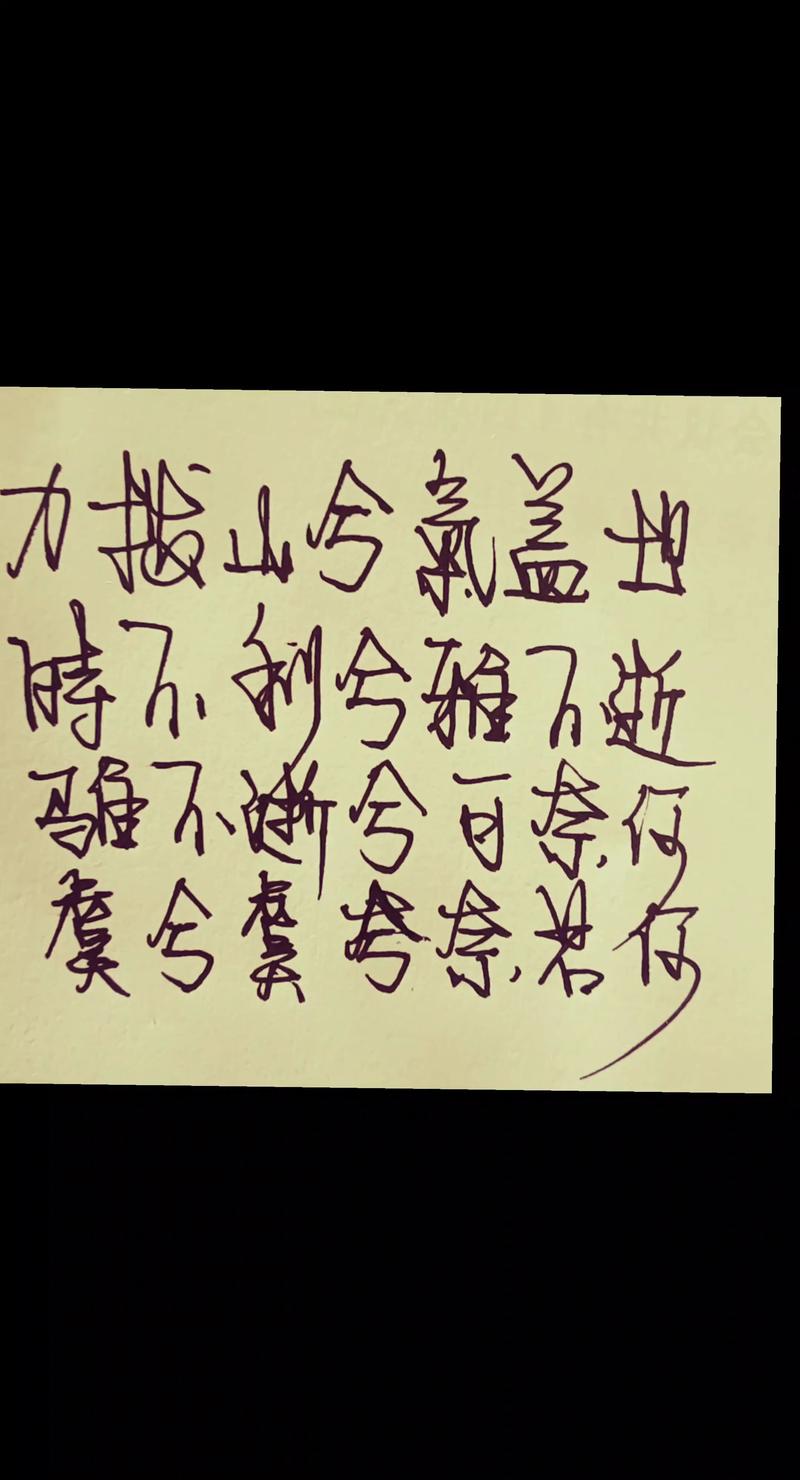 力拔山兮氣盖世
時不利兮骓不逝
骓不逝兮可奈何
虞兮虞兮奈若何